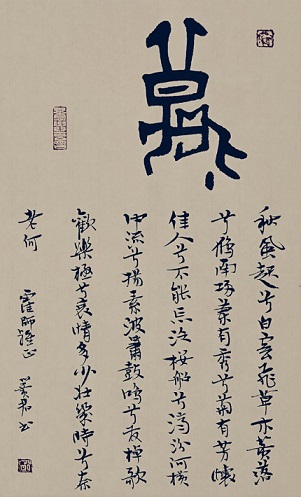 秋風起兮白雲飛草木黃落
兮雁南歸蘭有秀兮菊有芳懷
佳人兮不能忘泛樓船兮濟汾河橫
中流兮揚素波簫鼓鳴兮發棹歌
歡樂極兮哀情多少壯幾時兮奈
老何
霍師雅正